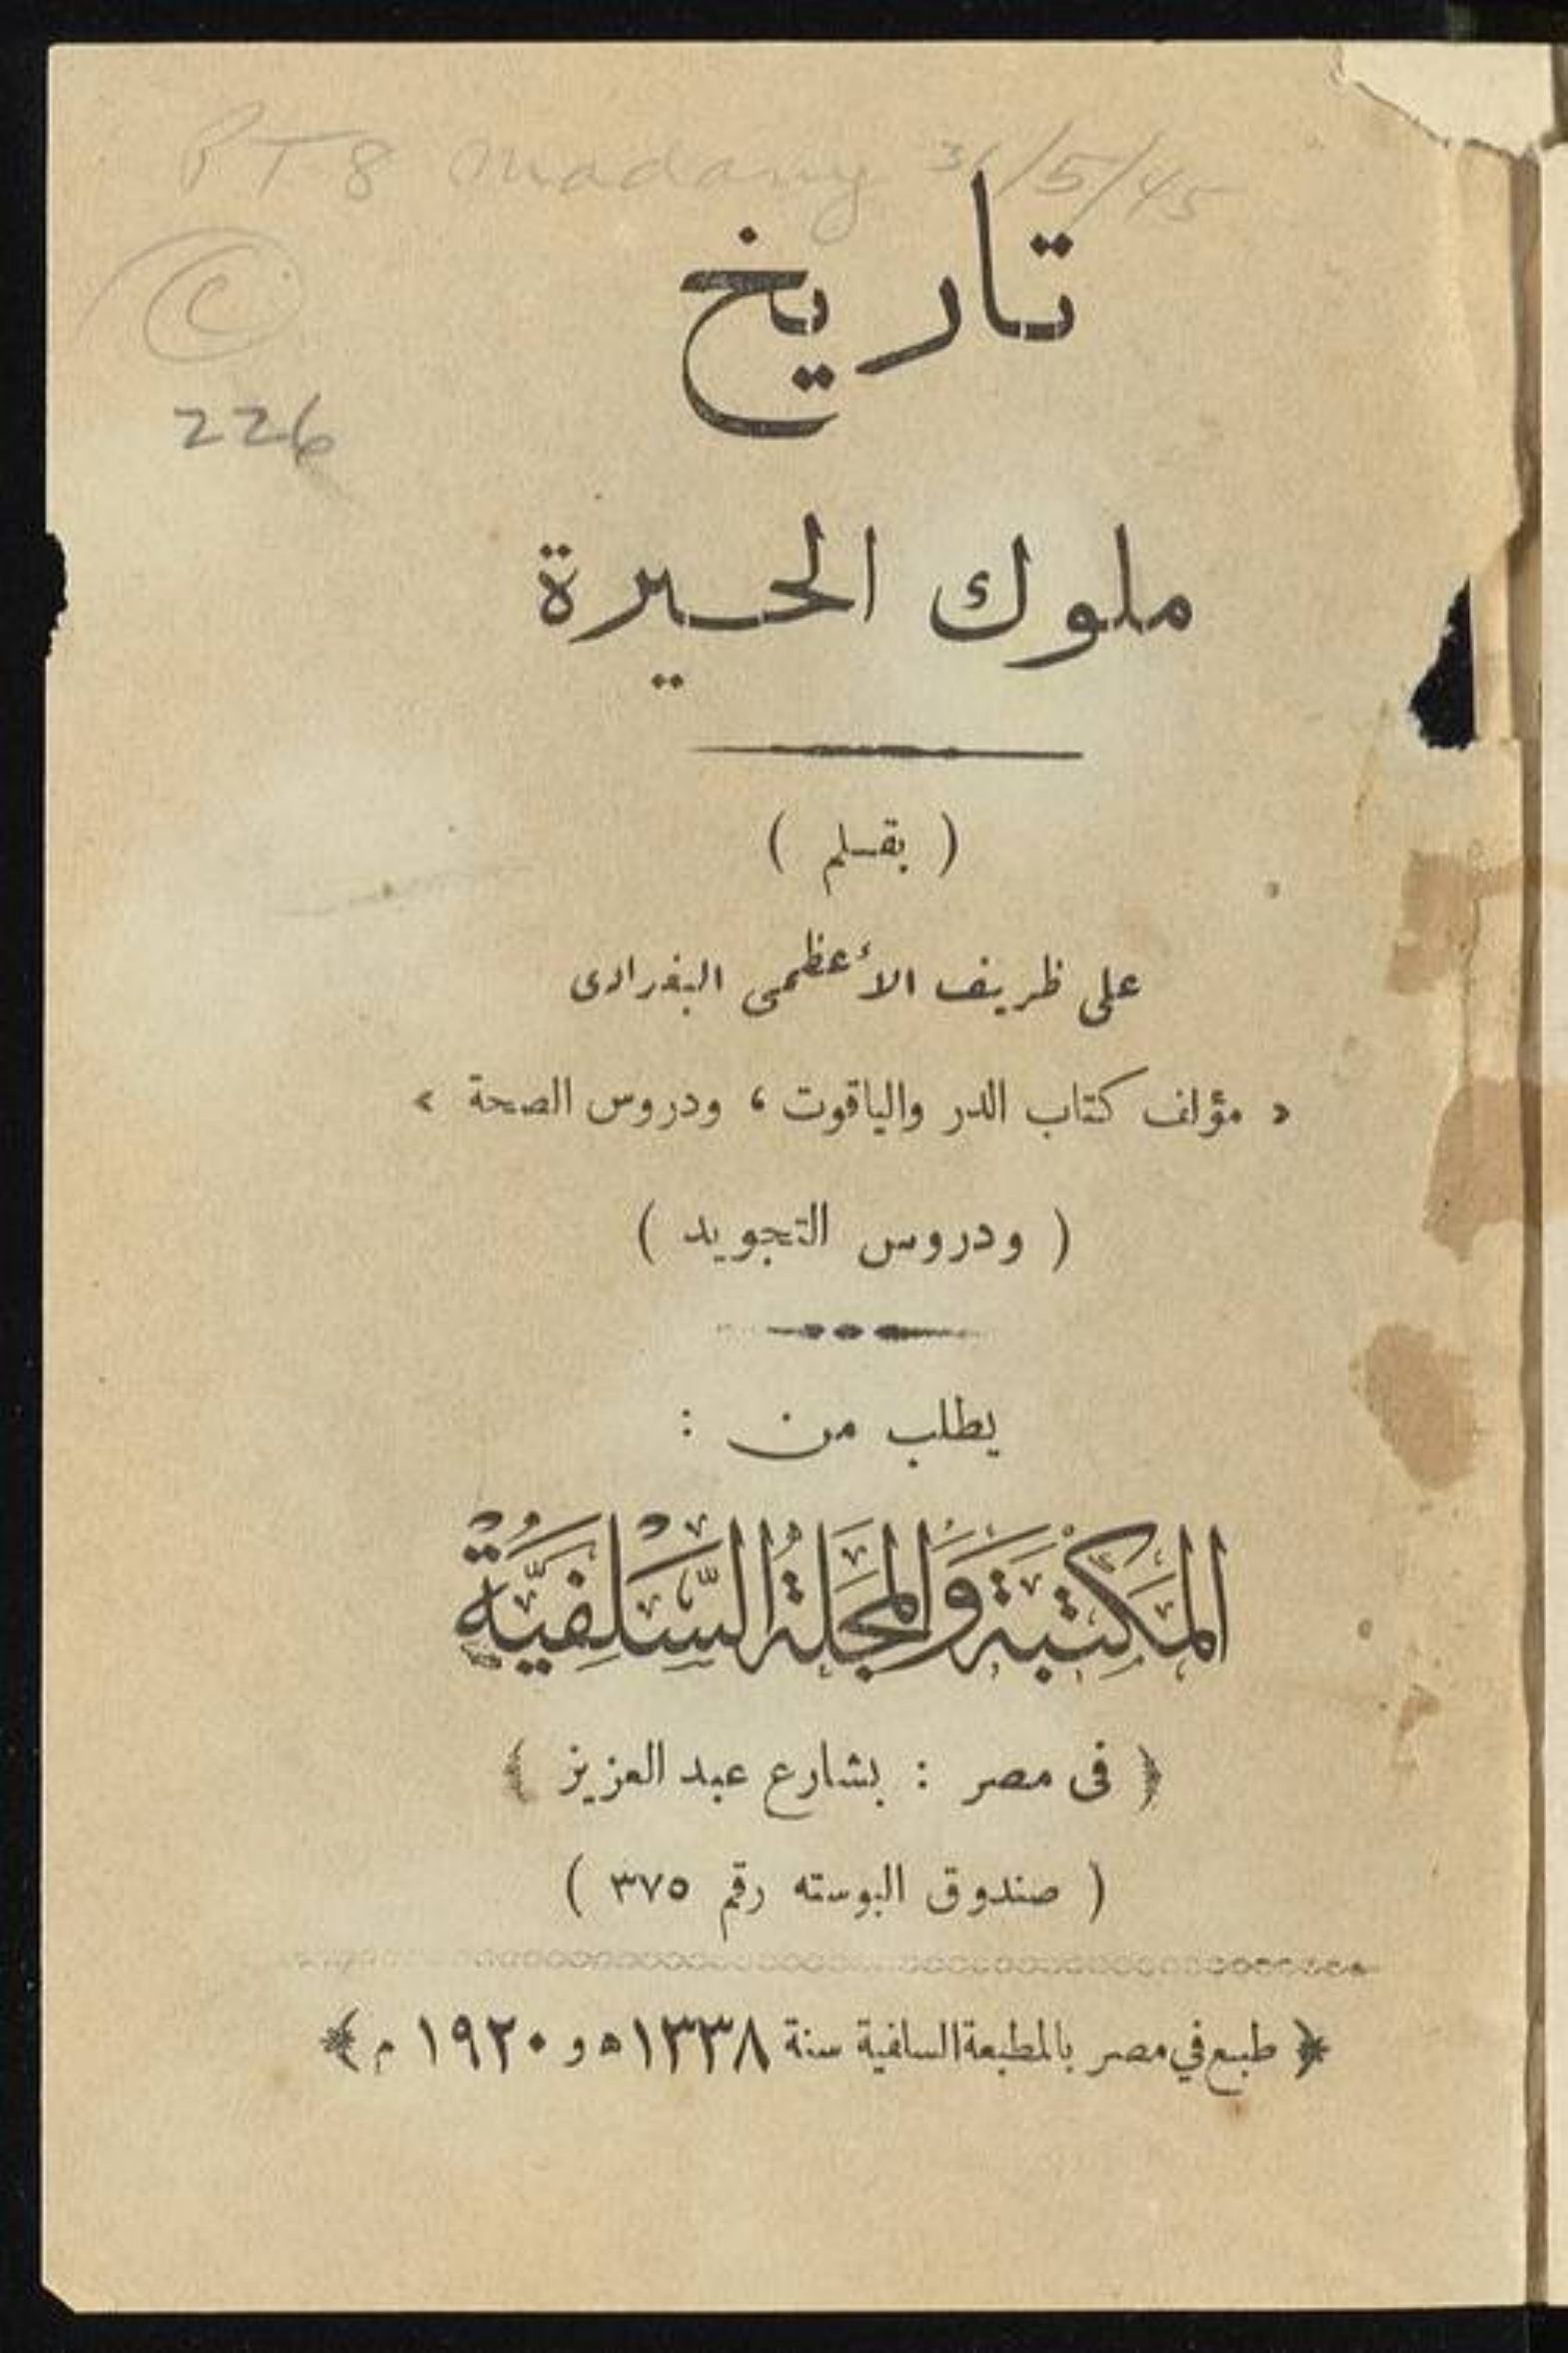 PT8 Madany 31/5/45
C
226
تاريخ
ملوك الحيرة
( بقلم )
على ظريف الأعظمى البغدادى
« مؤلف كتاب الدر والياقوت ، ودروس الصحة »
( ودروس التجويد )
يطلب من :
المَكتَبَة وَالمَجَلَّةُ السَّلَفيَّةُ
﴿ فى مصر : بشارع عبد العزيز ﴾
( صندوق البوسته رقم ٣٧٥ )
﴿ طبع في مصر بالمطبعة السلفية سنة ١٣٣٨ ه و ١٩٢٠ م ﴾